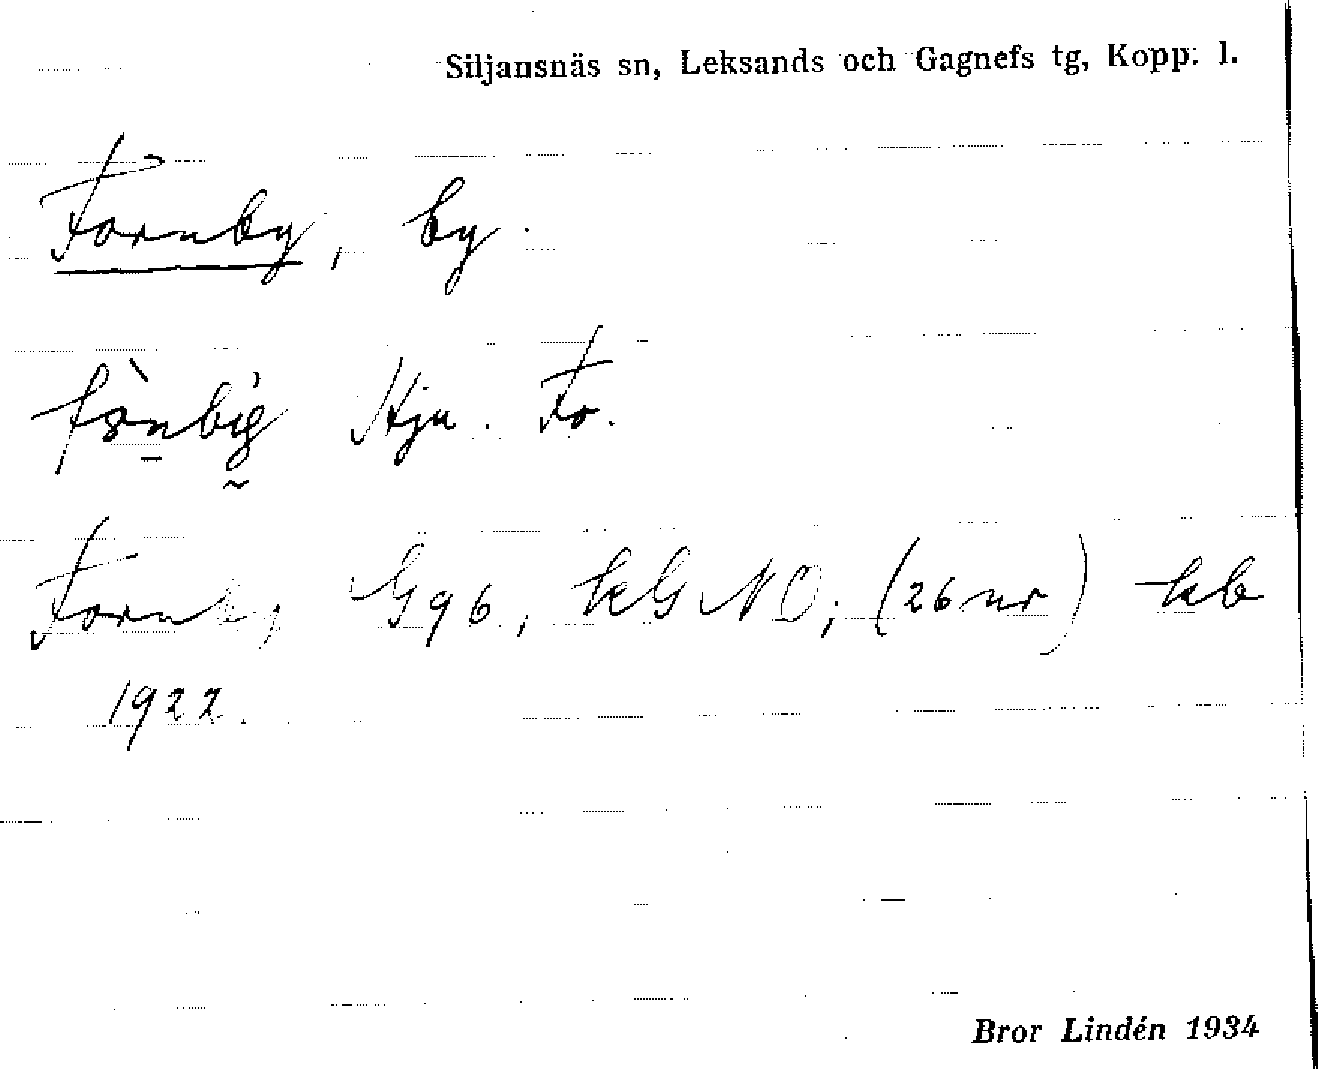 Siljansnäs sn, Leksands och Gagnefs tg, Kopp. l.
Fornby, by.
Hju. Fo.
G 96, kG NO; (26 nr) kb
1922.
Bror Lindén 1934